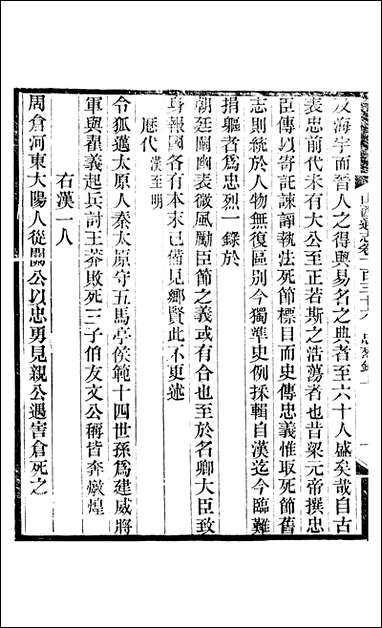 及海宇而晉人之得與易名之典者至六十人盛矣哉自古
表忠前代未有大公至正若斯之浩蕩者也昔梁元帝撰忠
臣傳以寄託諫諍執法死節標目而史傳忠義惟取死節舊
志則統於人物無復區別今獨準史例採輯自漢迄今臨難
捐軀者爲忠烈一錄於
朝廷闡幽表微風勵臣節之義或有合也至於名卿大臣致
身報國各有本末已備見鄉賢此不更述
歷代漢至明
令狐邁太原人秦太原守五馬亭侯範十四世孫爲建威將
軍與翟義起兵討王莽敗死三子伯友文公稱皆奔燉煌
右漢一人
周倉河東大陽人從關公以忠勇見親公遇害倉死之